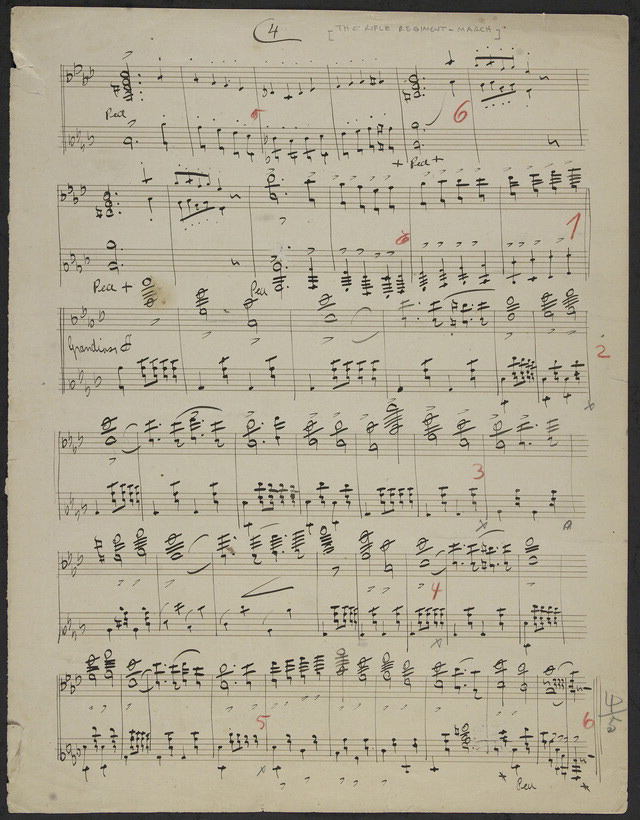 4 [THE RIFLE REGIMENT - MARCH]
Ped
5 6
+ Ped +
6 1
Ped + Ped
Grandioso
2
3
4
5 6
Ped *